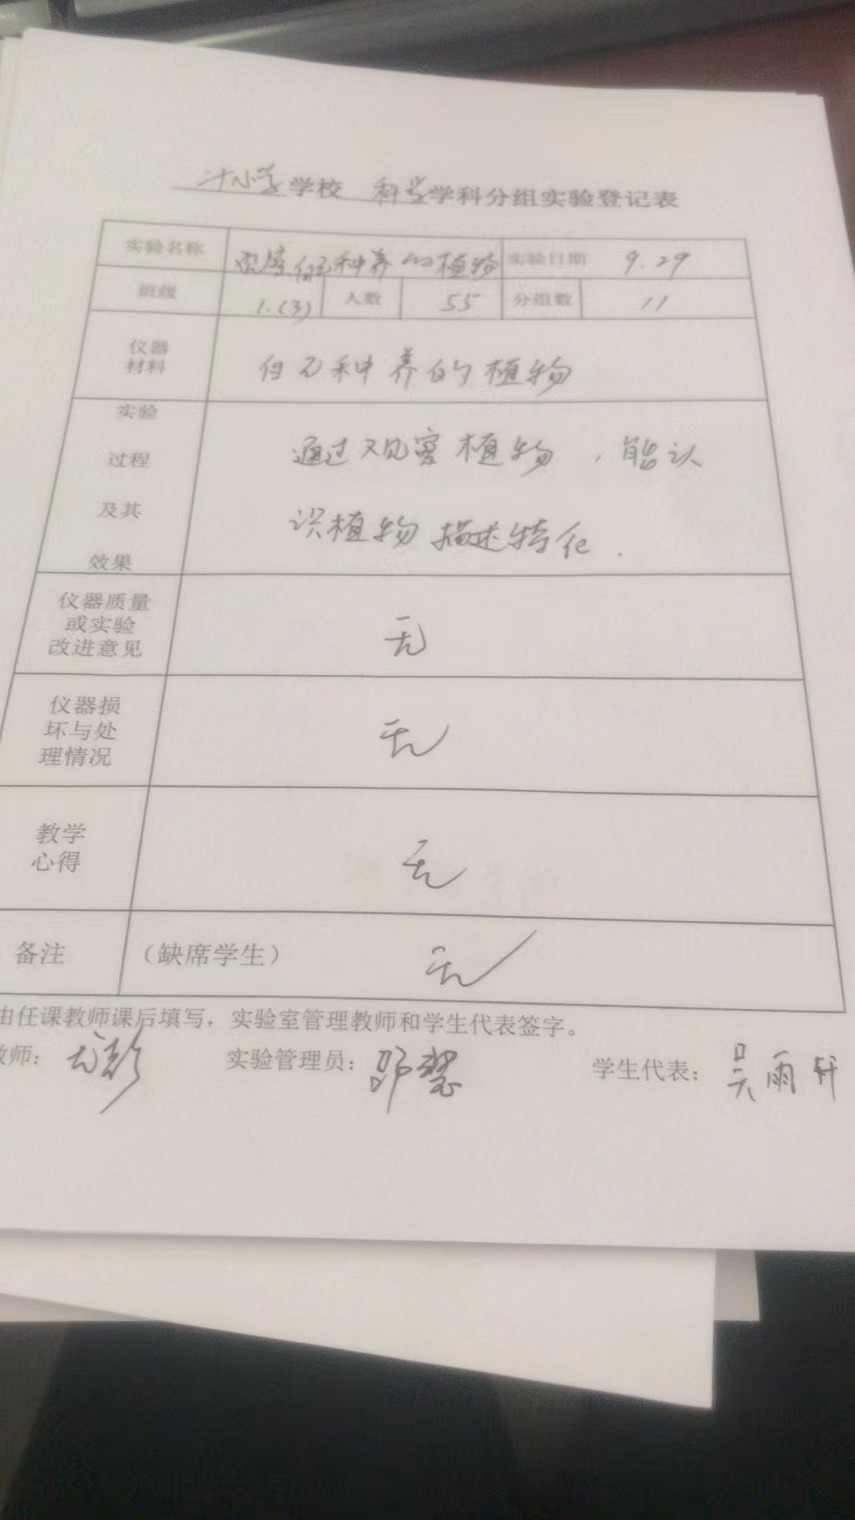 小学学校 科学学科分组实验登记表
实验名称 观察自己种养的植物 实验日期 9.29
班级 1.(3) 人数 55 分组数 11
仪器
材料
自己种养的植物
实验
过程
及其
效果
通过观察植物，能认
识植物描述特征.
仪器质量
或实验
改进意见
无
仪器损
坏与处
理情况
无
教学
心得
无
备注 （缺席学生） 无
由任课教师课后填写，实验室管理教师和学生代表签字。
教师： 实验管理员：邵慧 学生代表：吴雨轩